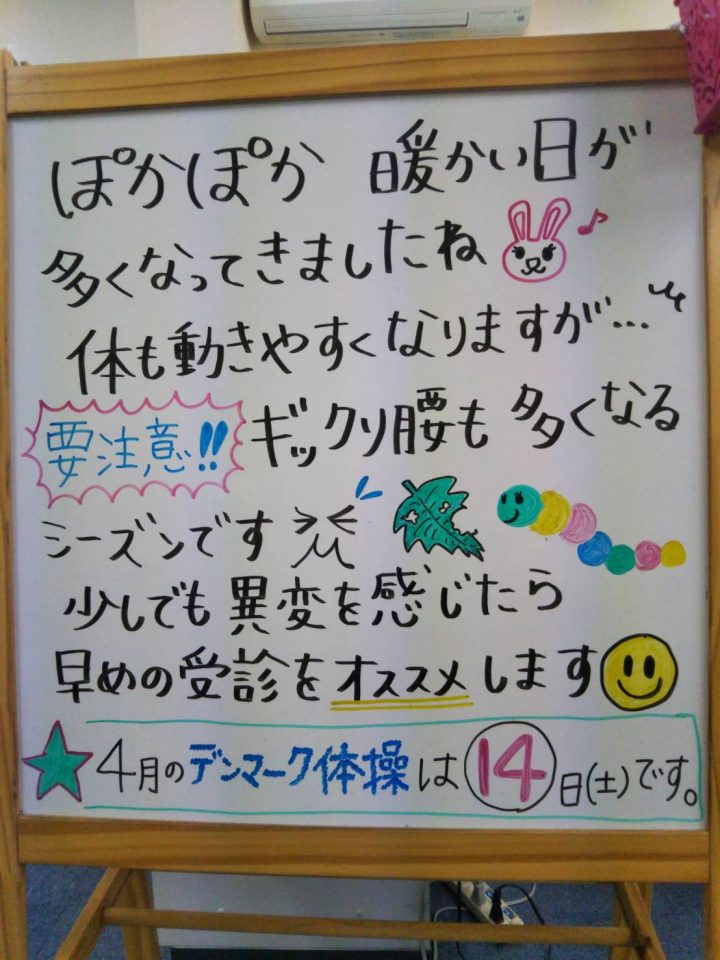 ぽかぽか 暖かい日が
多くなってきましたね♪
体も動きやすくなりますが…
要注意!! ギックリ腰も 多くなる
シーズンです
少しでも異変を感じたら
早めの受診をオススメします
★4月のデンマーク体操は⑭日(土)です。